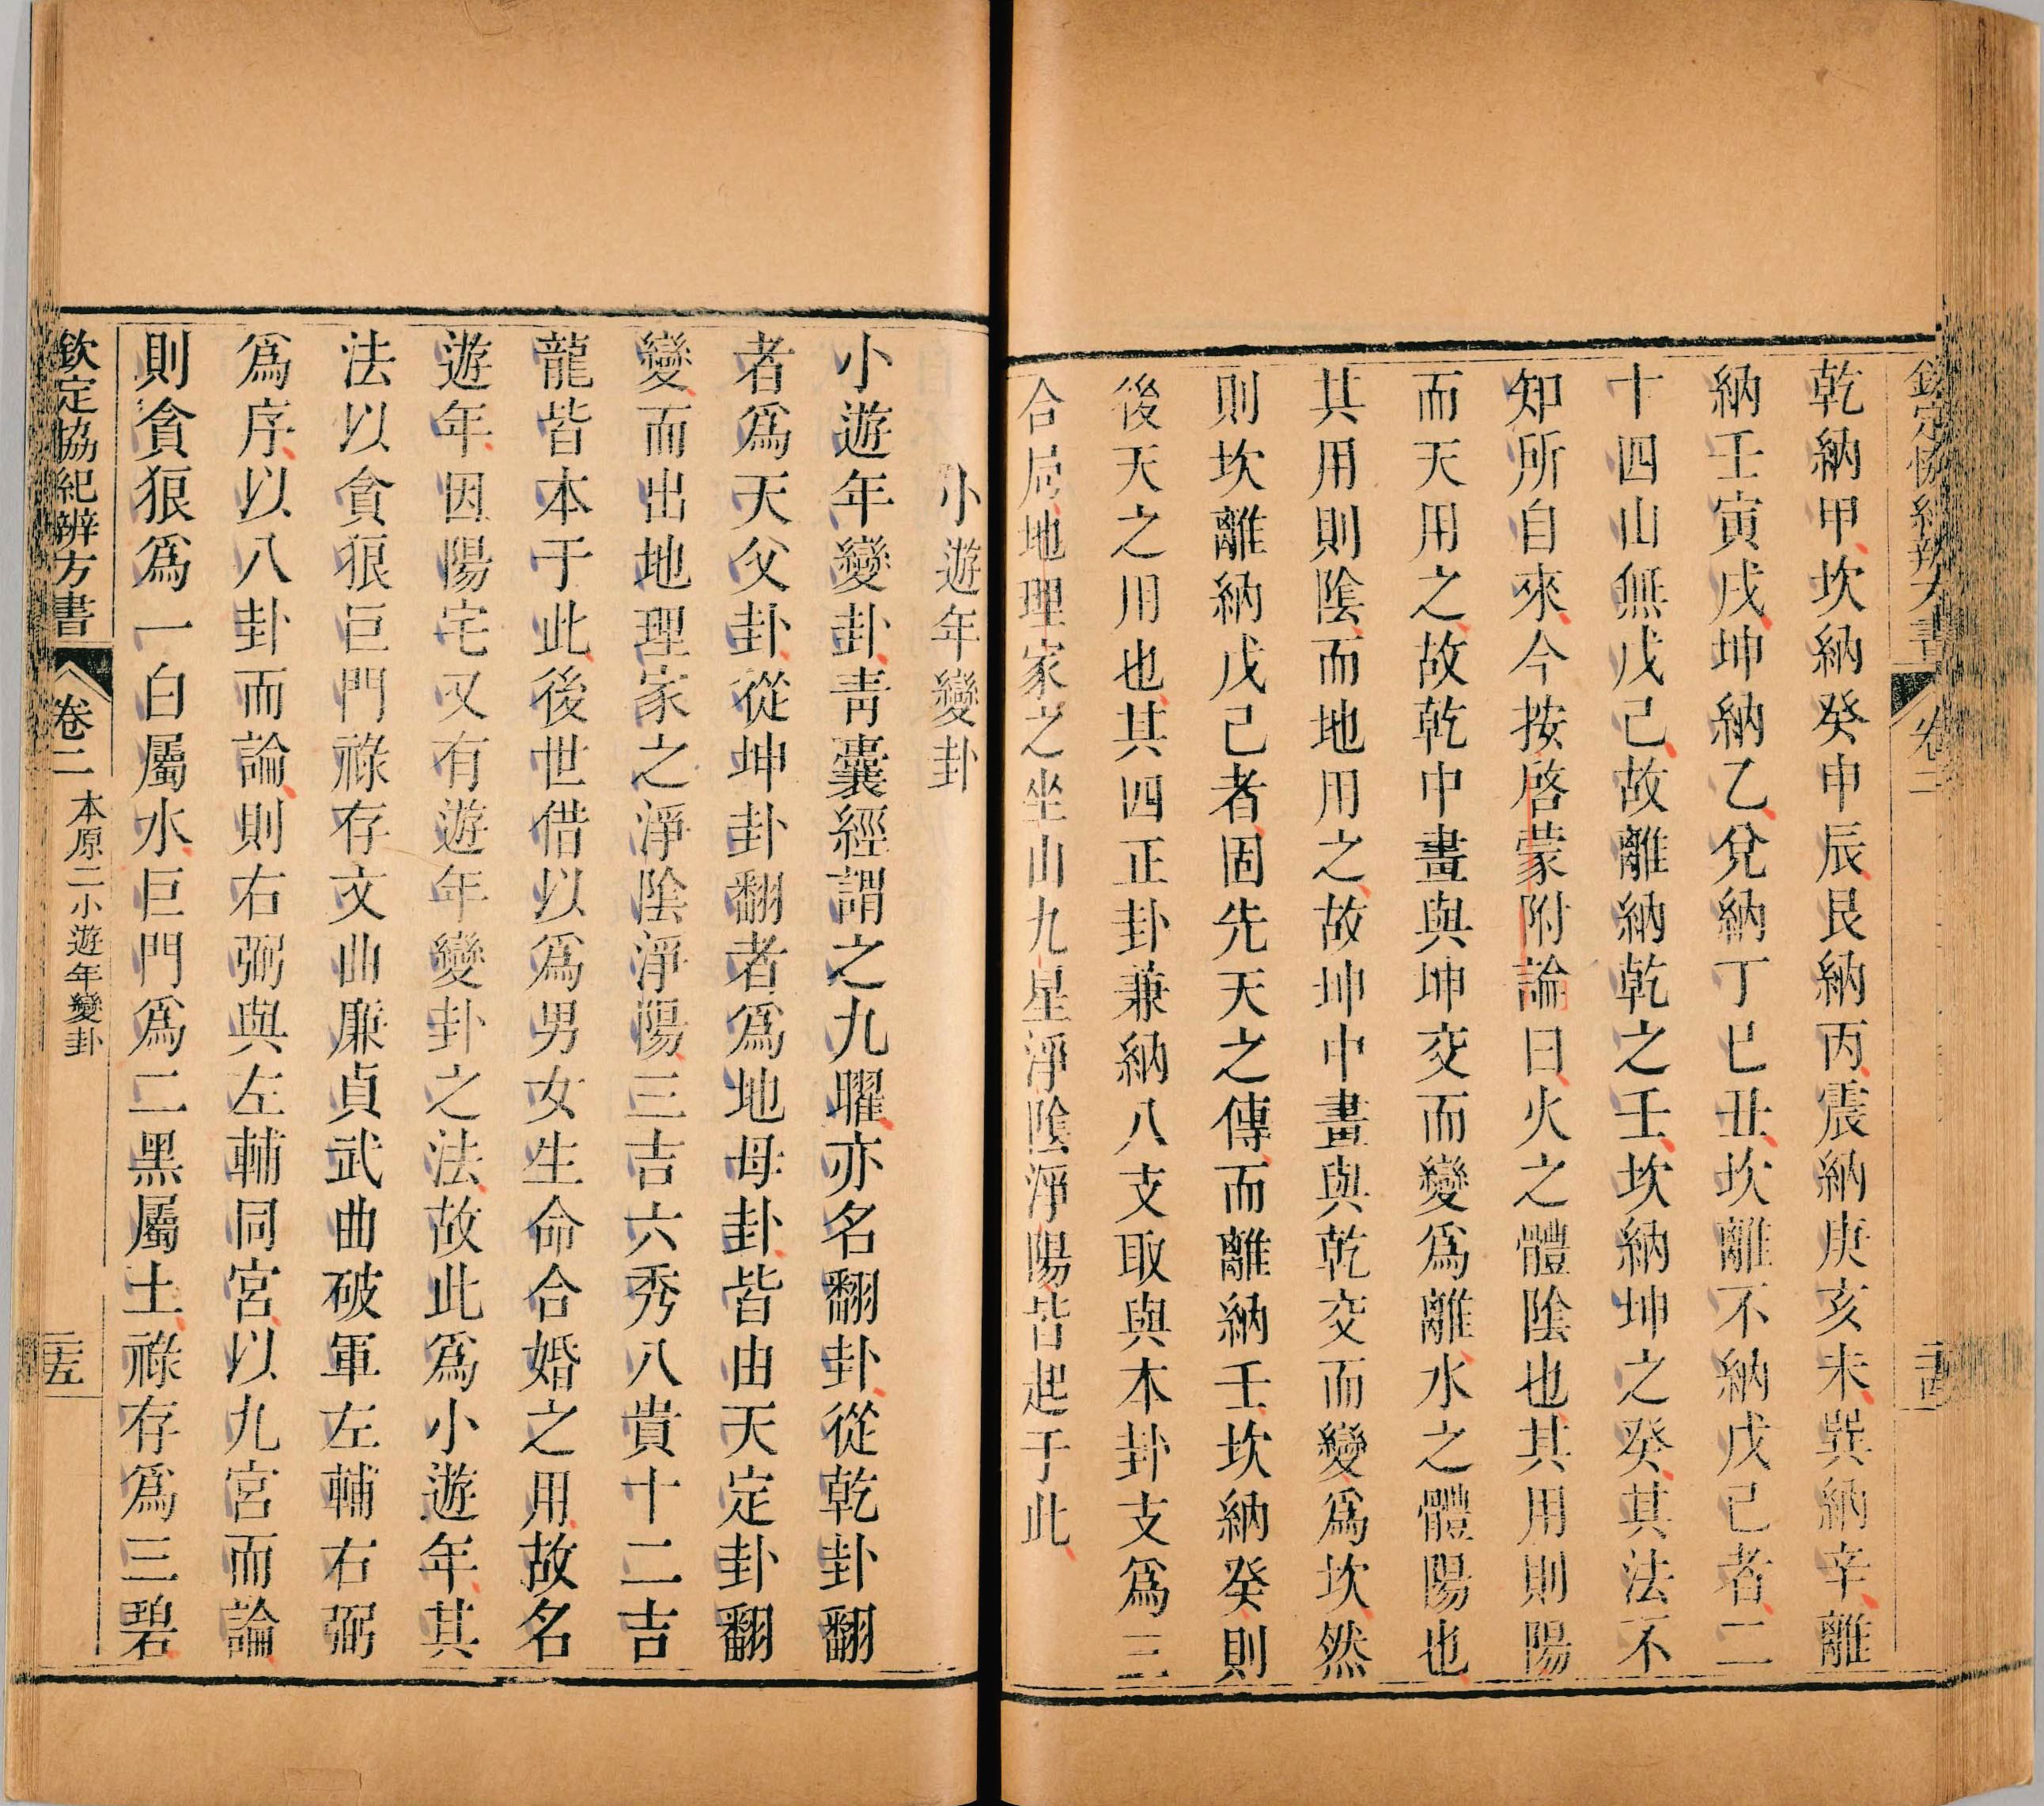 欽定協紀辨方書 卷二 二十四
乾納甲坎納癸申辰艮納丙震納庚亥未巽納辛離
納壬寅戌坤納乙兌納丁巳丑坎離不納戊己者二
十四山無戊己故離納乾之壬坎納坤之癸其法不
知所自來今按啓蒙附論曰火之體陰也其用則陽
而天用之故乾中畫與坤交而變爲離水之體陽也
其用則陰而地用之故坤中畫與乾交而變爲坎然
則坎離納戊己者固先天之傳而離納壬坎納癸則
後天之用也其四正卦兼納八支取與本卦支爲三
合局地理家之坐山九星淨陰淨陽皆起于此
小遊年變卦
小遊年變卦靑囊經謂之九曜亦名翻卦從乾卦翻
者爲天父卦從坤卦翻者爲地母卦皆由天定卦翻
變而出地理家之淨陰淨陽三吉六秀八貴十二吉
龍皆本于此後世借以爲男女生命合婚之用故名
遊年因陽宅又有遊年變卦之法故此爲小遊年其
法以貪狼巨門祿存文曲廉貞武曲破軍左輔右弼
爲序以八卦而論則右弼與左輔同宮以九宮而論
則貪狼爲一白屬水巨門爲二黑屬土祿存爲三碧
欽定協紀辨方書 卷二 本原二小遊年變卦 二十五